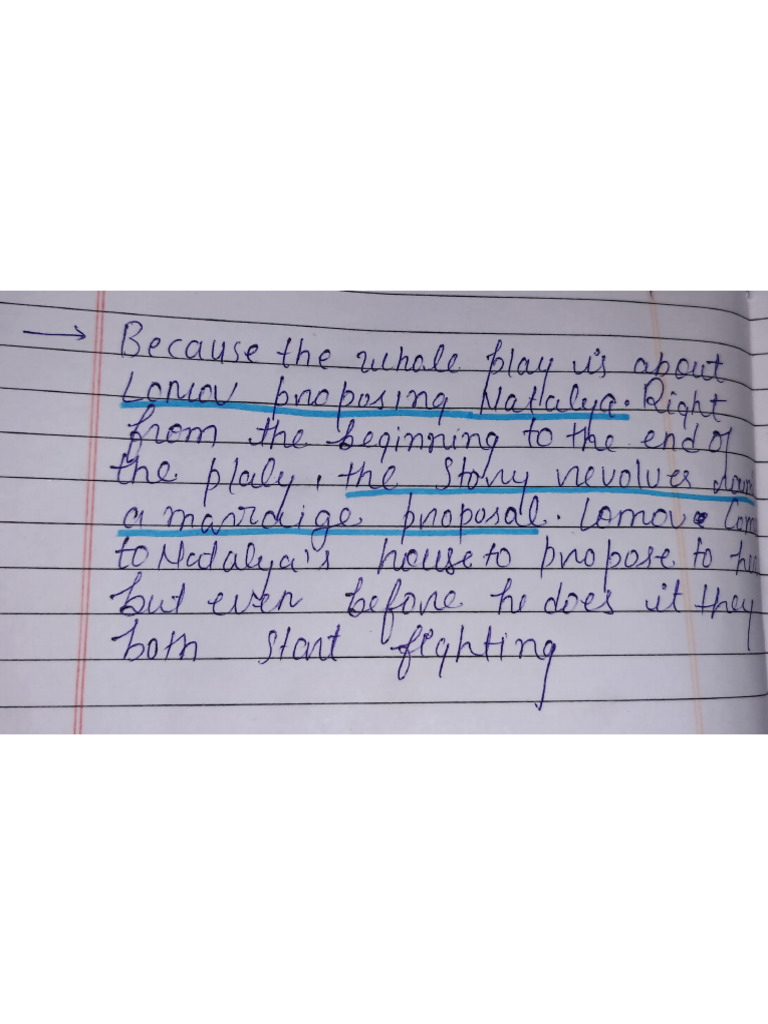 → Because the whole play is about
Lomov proposing Natalya. Right
from the beginning to the end of
the plaly, the story revolves
a marrdige proposal. Lomov
to Natalya's house to propose to
but even before he does it they
both start fighting